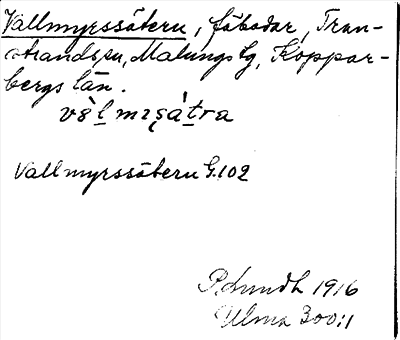 Vallmyrssätern, fäbodar, Tran-
strands sn, Malungs tg, Koppar-
bergs län.
Vallmyrssätern G.102
1916
Ulma 300:1